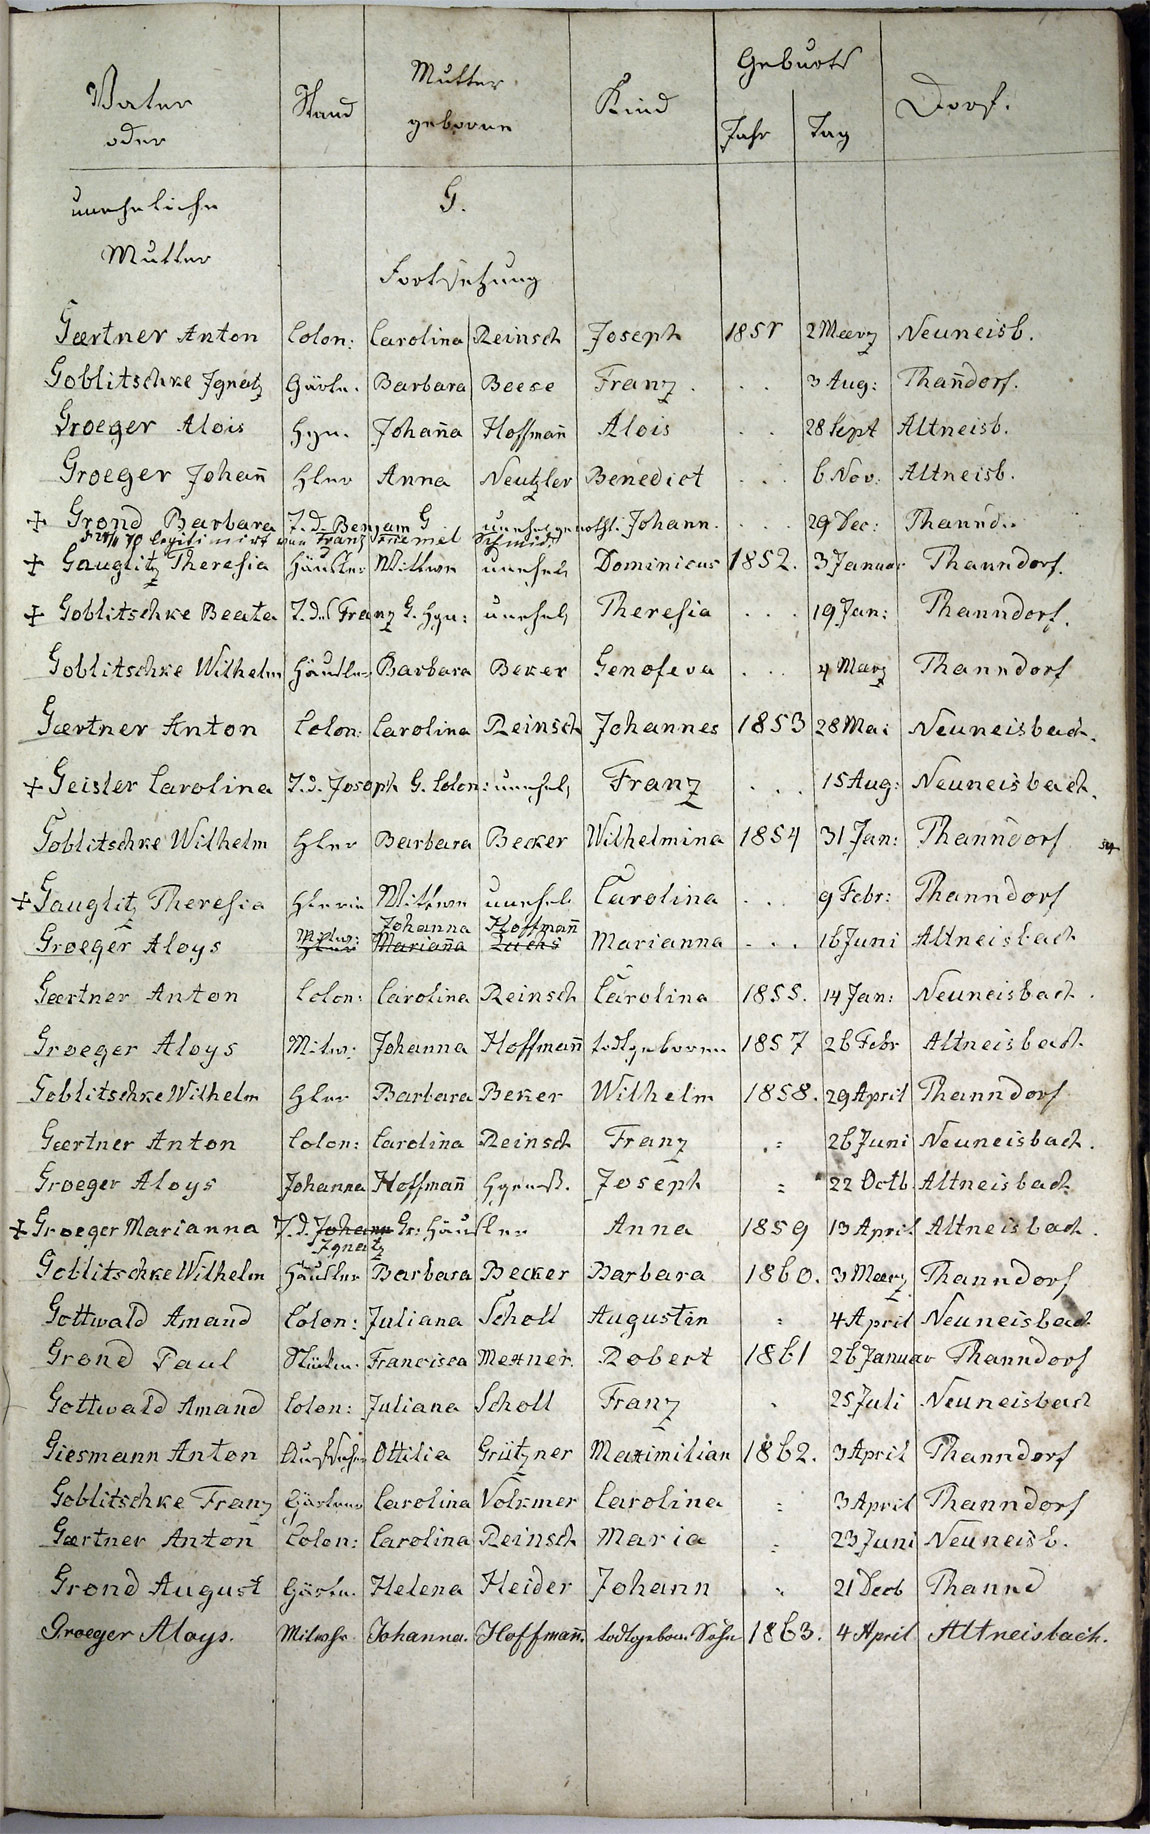 Vater
oder
Stand
Mutter
geborne
Kind
Geburts
Jahr
Tag
Dorf.
uneheliche
Mutter
G.
Fortsetzung
Gærtner Anton Colon: Carolina Reinsch Joseph 1851 2 Maerz Neuneisb.
Goblitschke Ignatz Gärtn. Barbara Beese Franz . . . 3 Aug: Than̄dorf.
Groeger Alois Johan̄a Hoffman̄ Alois . . . 28 Sept Altneisb.
Groeger Johan̄ Hler Anna Neutzler Benedict . . . 6. Nov: Altneisb.
+ Grond Barbara T. d. Benjam G. Johann. . . . 29 Dec: Thannd..
legitimirt von Franz Schmidt
+ Gauglitz Theresia Häusler Wittwe unehel Dominicus 1852. 3 Januar Thanndorf.
+ Goblitschke Beata T. des Franz G. unehel Theresia . . . 19 Jan: Thanndorf.
Goblitschke Wilhelm Häusler Barbara Beker Genofeva . . . 4 Marz Thanndorf
Gærtner Anton Colon: Carolina Reinsch Johannes 1853 28 Mai Neuneisbach.
+ Geisler Carolina T. d. Joseph G. Colon: unehel Franz . . . 15 Aug: Neuneisbach.
Goblitschke Wilhelm Hler Barbara Becker Wilhelmina 1854 31 Jan: Thanndorf
+ Gauglitz Theresia Hlerin Wittwe unehel. Carolina . . . 9 Febr: Thanndorf
Johanna Hoffman̄
Groeger Aloys Mitw: Hler Marian̄a Luchs Marianna . . . 16 Juni Altneisbach
Gærtner Anton Colon: Carolina Reinsch Carolina 1855. 14 Jan: Neuneisbach.
Groeger Aloys Mitw: Johanna Hoffman̄ todtgeboren 1857 26 Febr Altneisbach.
Goblitschke Wilhelm Hler Barbara Beker Wilhelm 1858. 29 April Thanndorf
Gærtner Anton Colon: Carolina Reinsch Franz = 26 Juni Neuneisbach.
Groeger Aloys Johanna Hoffman̄ Joseph = 22 Octb. Altneisbach.
+ Groeger Marianna T. d. Johann Gr: Häusler Anna 1859 13 April Altneisbach.
Ignatz
Goblitschke Wilhelm Häusler Barbara Becker Barbara 1860. 3 Maerz Thanndorf
Gottwald Amand Colon: Juliana Scholl Augustin = 4 April Neuneisbach
Grond Paul Francisca Mexner. Robert 1861 26 Januar Thanndorf
Gottwald Amand Colon: Juliana Scholl Franz 25 Juli Neuneisbach
Giesmann Anton Ottilia Grützner Maximilian 1862. 3 April Thanndorf
Goblitschke Franz Gärtner Carolina Volkmer Carolina = 3 April Thanndorf
Gærtner Anton Colon: Carolina Reinsch Maria = 23 Juni Neuneisb.
Grond August Gärtn. Helena Heider Johann = 21 Decb Thannd
Groeger Aloys. Mitwhr Johanna. Hoffman̄. todtgebor. Sohn 1863. 4 April Altneisbach.